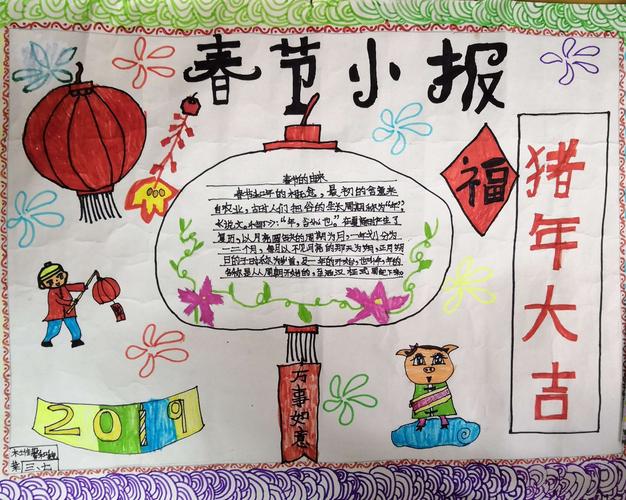 春节小报
福
猪年大吉
春节的由来
春节和年的概念，最初的含意来
自农业，古时人们把谷的生长周期称为“年”，
《说文·禾部》：“年，谷熟也。”在夏商时产生了
夏历，以月亮圆缺的周期为月，一年划分为
十二个月，每月以不见月亮的那天为朔，正月朔
日的子时称为岁首，是一年的开始，也叫年，年的
名称是从周朝开始的，至西汉才正式固定下来。
万事如意
2019
三、七